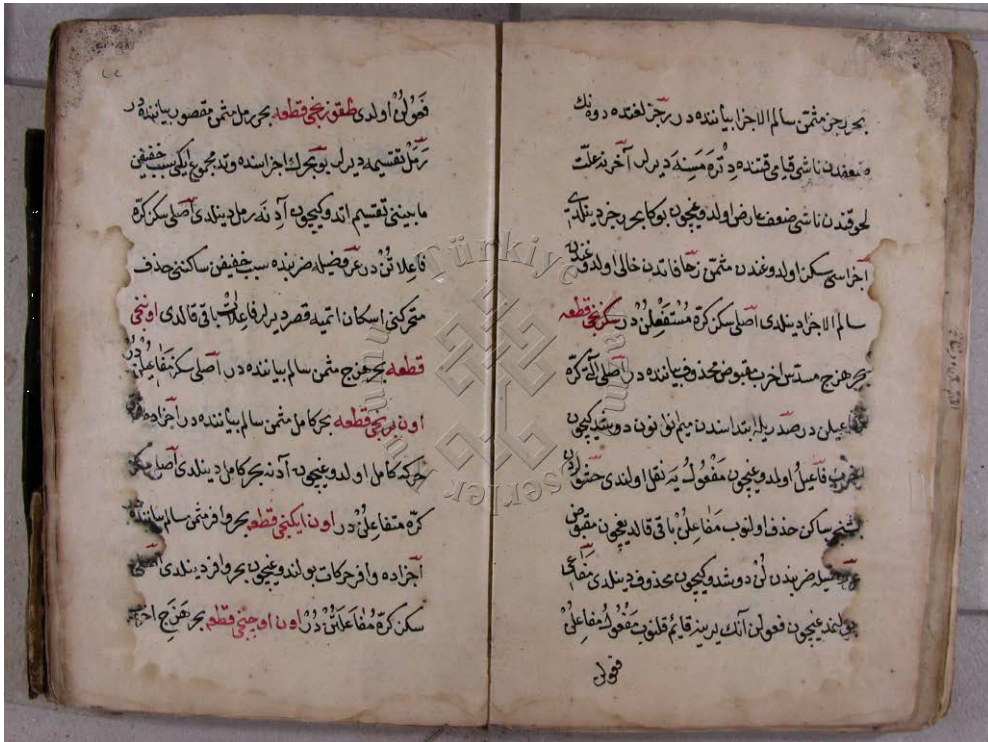 بحر رجز مثمن سالم الاجزا بياننده در رجز لغتده دوه نك
ضعفدن ناشى قيامى قتنده دتره مسنه ديرلر آخرنه علت
لحوقندن ناشى ضعف عارض اولدوغيچون بوكا بحر رجز دينلدى
اجزاسى سكز اولدوغندن مثمن زحافاتدن خالى اولدوغندن
سالم الاجزا دينلدى اصلى سكز كره مستفعلن در سكزنجى قطعه
بحر هزج مسدس اخرب مقبوض محذوف بياننده در اصلى آلتى كره
مفاعيلن در صدريله ابتداسندن ميم نون دوشديكيچون
اخرب فاعيل اولدوغيچون مفعول يه نقل اولندى حشوندن
بشنجى ساكن حذف اولنوب مفاعلن باقى قالديغيچون مقبوض
ضربندن لن دوشدوكيچون محذوف دينلدى مفاعى
بولنديغيچون فعولن آنك يرينه قائم قلنوب مفعول مفاعلن
فعولن
فعولن اولدى طقوزنجى قطعه بحر رمل مثمن مقصور بياننده در
رمل تقسيمه ديرلر بو بحرك اجزاسنده وتد مجموع ايكى سبب خفيفى
مابيننى تقسيم اتدوكيچون آدنه رمل دينلدى اصلى سكز كره
فاعلاتن در عروضيله ضربنده سبب خفيفن ساكننى حذف
متحركنى اسكان اتميه قصر ديرلر فاعلات باقى قالدى اوننجى
قطعه بحر هزج مثمن سالم بياننده در اصلى سكز مفاعيلن در
اون برنجى قطعه بحر كامل مثمن سالم بياننده در اجزاده
حركه كامل اولدوغيچون آدنه بحر كامل دينلدى اصلى سكز
كره متفاعلن در اون ايكنجى قطعه بحر وافر مثمن سالم بياننده
اجزاده وافر حركات بولندوغيچون بحر وافر دينلدى اصلى
سكز كره مفاعلتن در اون اوچنجى قطعه بحر هزج اخرب